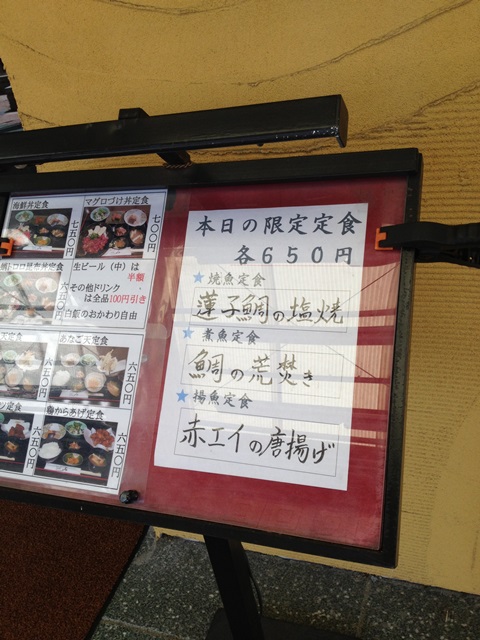 海鮮丼定食
七五〇円
マグロづけ丼定食
七〇〇円
生ビール(中)は
半額
その他ドリンク
は全品100円引き
白飯のおかわり自由
あなご天定食
六五〇円
六五〇円
鶏からあげ定食
六五〇円
六五〇円
本日の限定定食
各650円
★焼魚定食
蓮子鯛の塩焼
★煮魚定食
鯛の荒焚き
★揚魚定食
赤エイの唐揚げ